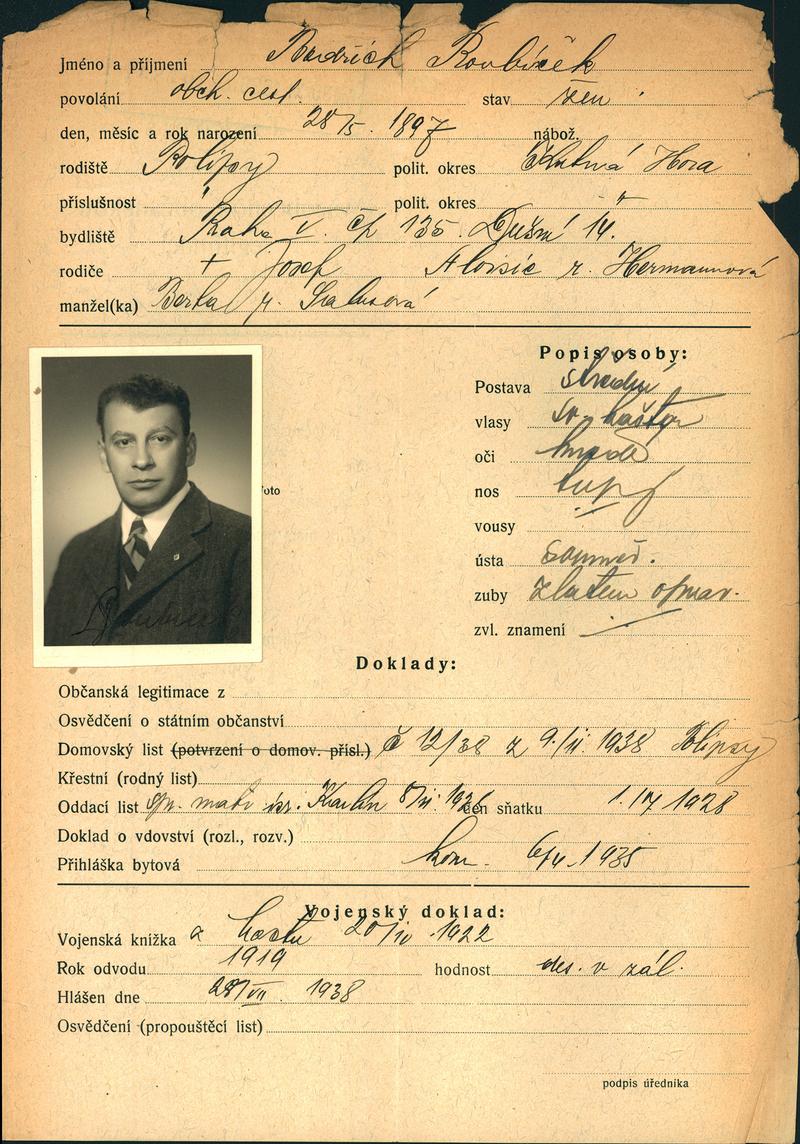 Jméno a příjmení Bedřich Roubíček
povolání obch. cest. stav žen.
den, měsíc a rok narození 28/5. 1897 nábož.
rodiště Polipsy polit. okres Kutná Hora
příslušnost " polit. okres "
bydliště Praha V. čp 135. Dušní 14.
rodiče + Josef Aloisie r. Hermannová
manžel(ka) Berta r. Salusová
Popis osoby:
Postava střední
vlasy sv. kaštan
oči hnědé
nos tupý
vousy
ústa souměr.
zuby zlatem oprav.
zvl. znamení
foto
Doklady:
Občanská legitimace z
Osvědčení o státním občanství
Domovský list (potvrzení o domov. přísl.) č 12/38 z 9./II. 1938
Křestní (rodný list)
Oddací list isr. Karlín den sňatku 1928
Doklad o vdovství (rozl., rozv.)
Přihláška bytová kom. 1935
Vojenský doklad:
Vojenská knížka a 20/IV 1922
Rok odvodu 1919 hodnost des. v zál.
Hlášen dne 28/VII. 1938
Osvědčení (propouštěcí list)
podpis úředníka